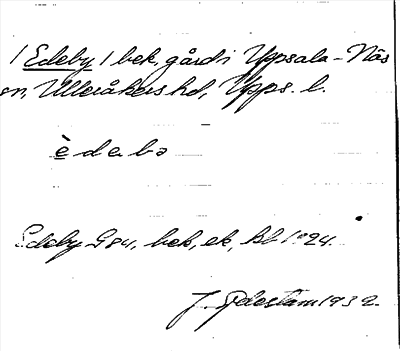 / Edeby / bek, gård i Uppsala-Näs
sn, Ulleråkers hd, Upps. l.
è d e b ə
Edeby G 84, bek, ek, kbl 1°° 24.
J. 1932.